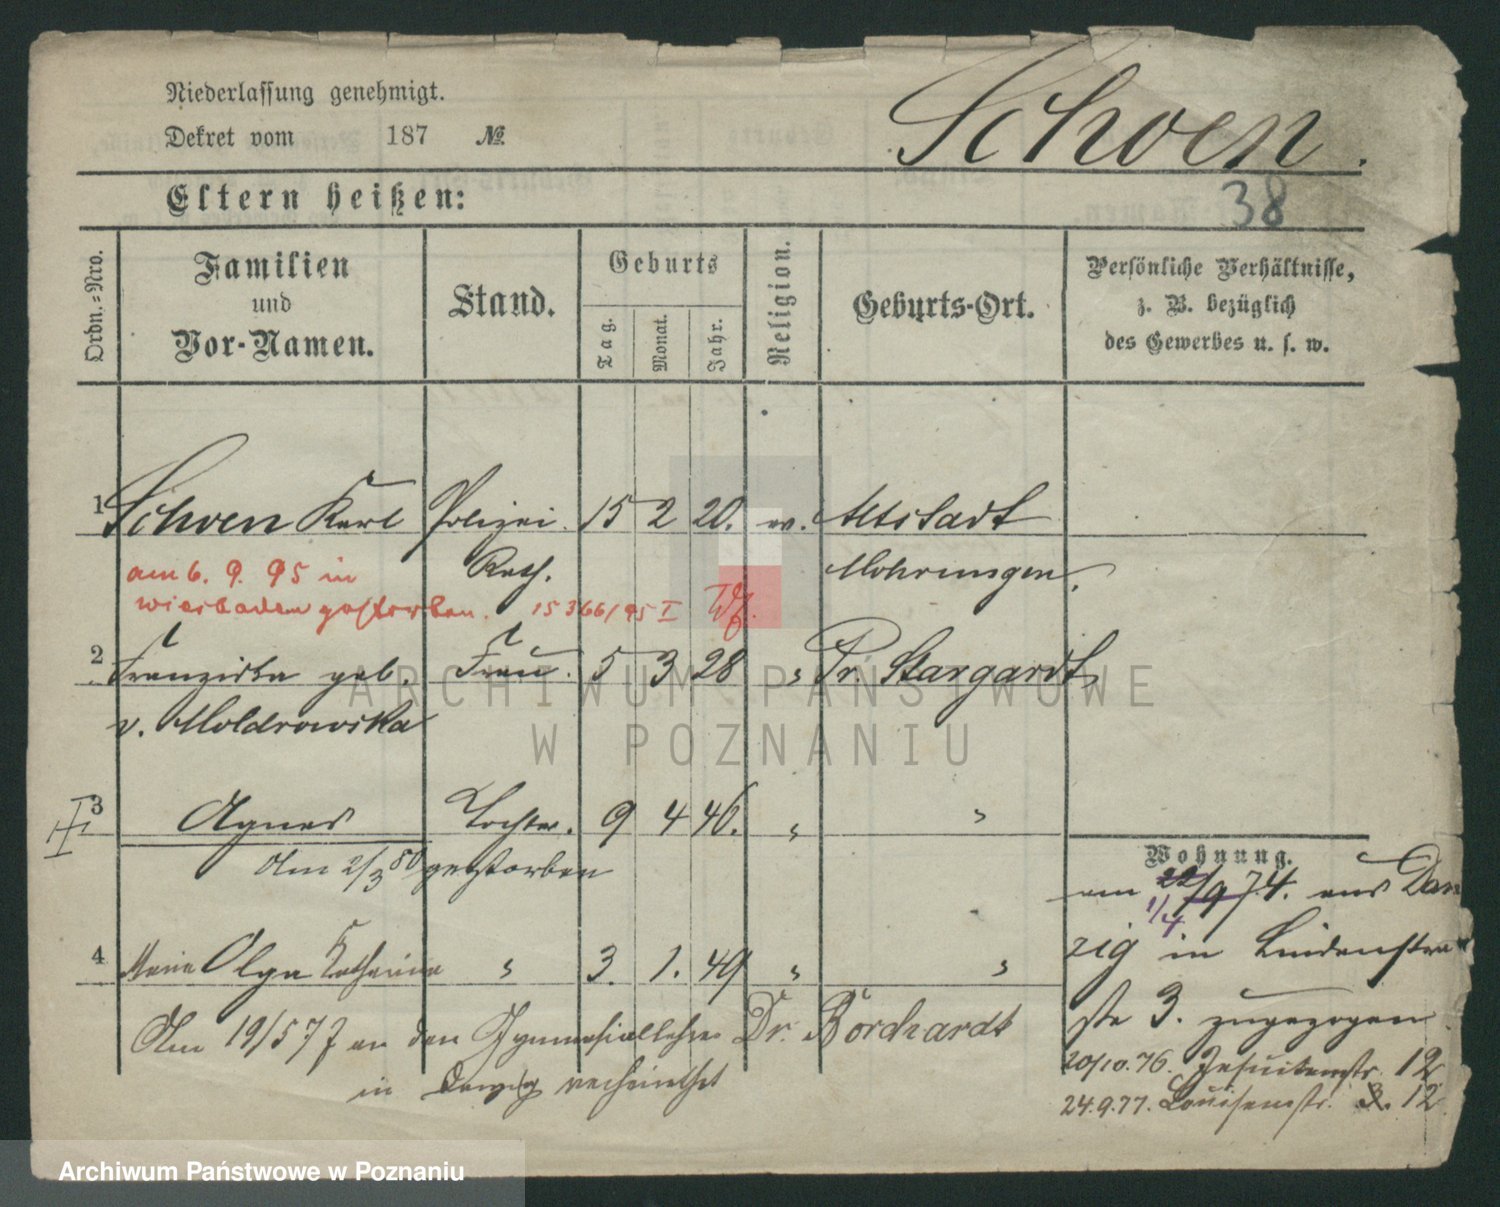 Niederlassung genehmigt.
Dekret vom 187 №
Schoen.
38
Eltern heißen:
Ordn.-Nro.
Familien
und
Vor-Namen.
Stand.
Geburts
Tag.
Monat.
Jahr.
Religion.
Geburts-Ort.
Persönliche Verhältnisse,
z. B. bezüglich
des Gewerbes u. s. w.
1 Schoen Karl Polizei 15 2 20. ev. Altstadt
Rath. Mohrungen.
am 6. 9. 95 in
Wiesbaden gestorben. 15366/95 I
2 Franziska geb. Frau. 5 3 28 " Pr. Stargardt
v. Moldrowska
3 Agnes Tochter. 9 4 46. " "
Am 2/3 80 gestorben
4 Marie Olga Katharina " 3. 1. 49 " "
Am 19/5 77 an den Gymnasiallehrer Dr. Borchardt
in Danzig verheirathet
Wohnung.
am 22/9 74. aus Dan
1/4
zig in Lindenstra
ße 3. zugezogen.
20/10. 76. Jesuitenstr. 12
24.9.77. Louisenstr. 12
ARCHIWUM PAŃSTWOWE
W POZNANIU
Archiwum Państwowe w Poznaniu